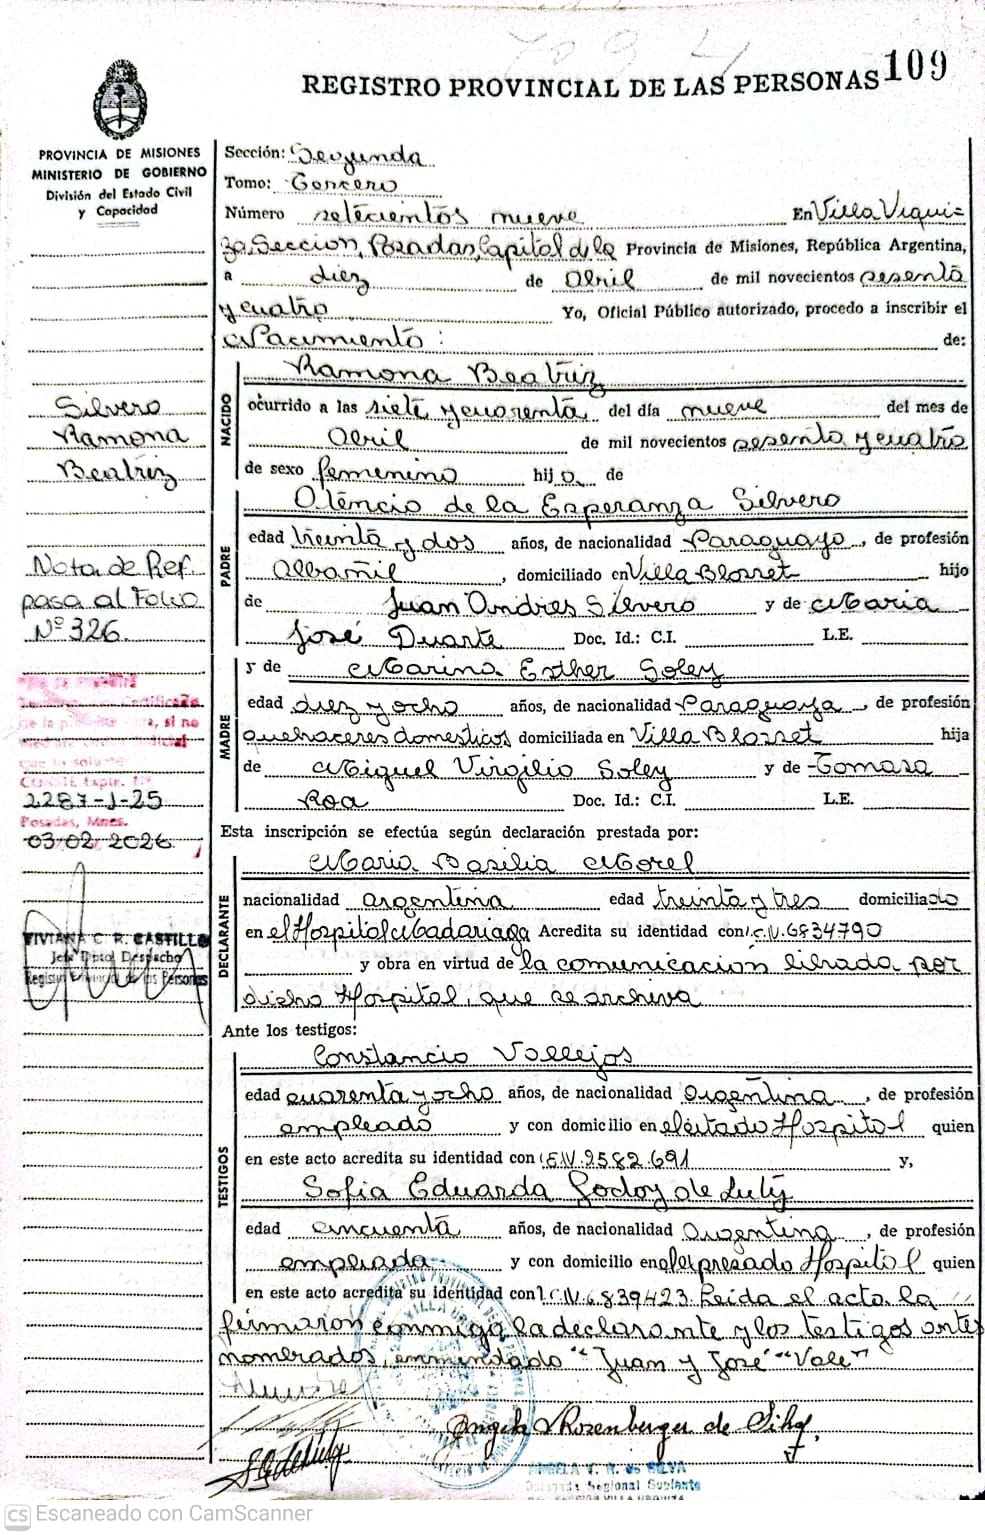 109
REGISTRO PROVINCIAL DE LAS PERSONAS
PROVINCIA DE MISIONES
MINISTERIO DE GOBIERNO
División del Estado Civil
y Capacidad
Sección: Segunda
Tomo: Tercero
Número setecientos nueve En Villa Urqui=
za, Seccion, Posadas, Capital de la Provincia de Misiones, República Argentina,
a diez de Abril de mil novecientos sesenta
y cuatro Yo, Oficial Público autorizado, procedo a inscribir el
Nacimiento: de:
NACIDO
Ramona Beatriz
ocurrido a las siete y cuarenta del día nueve del mes de
Abril de mil novecientos sesenta y cuatro
de sexo femenino hij a de
Silvero
Ramona
Beatriz
PADRE
Otencio de la Esperanza Silvero
edad treinta y dos años, de nacionalidad Paraguayo, de profesión
Albañil, domiciliado en Villa Blosset hijo
de Juan Andres Silvero y de Maria
José Duarte Doc. Id.: C.I. L.E.
Nota de Ref.
pasa al Folio
Nº 326.
MADRE
y de Marina Esther Soley
edad diez y ocho años, de nacionalidad Paraguaya, de profesión
quehaceres domesticos domiciliada en Villa Blosset hija
de Miguel Virgilio Soley y de Tomasa
Roa Doc. Id.: C.I. L.E.
si no
2287-J-25
Posadas, Mnes.
03/02/2026
VIVIANA C. R. CASTILLO
Jefe Dpto. Despacho
Registro Provincial de las Personas
Esta inscripción se efectúa según declaración prestada por:
DECLARANTE
Maria Basilia Morel
nacionalidad argentina edad treinta y tres domiciliado
en el Hospital Madariaga Acredita su identidad con C.N. 6834790
y obra en virtud de la comunicacion librada por
dicho Hospital, que se archiva
Ante los testigos:
TESTIGOS
Constancio Vallejos
edad cuarenta y ocho años, de nacionalidad Argentina, de profesión
empleado y con domicilio en el citado Hospital quien
en este acto acredita su identidad con E.N. 2582.691 y,
Sofia Eduarda Godoy de Luty
edad cincuenta años, de nacionalidad Argentina, de profesión
empleada y con domicilio en el expresado Hospital quien
en este acto acredita su identidad con C.N. 6839423 Leida el acta la
firmaron conmigo la declarante y los testigos antes
nombrados, enmendado "Juan y José" "Vale"
Angela Rosenberger de Silva
ANGELA V. R. de SILVA
Delegada Regional Suplente
CS Escaneado con CamScanner